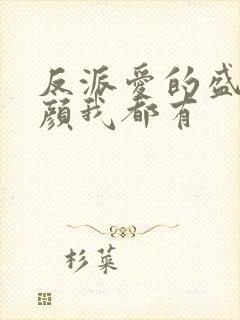 反派愛的盛
顔我都有
杉菜